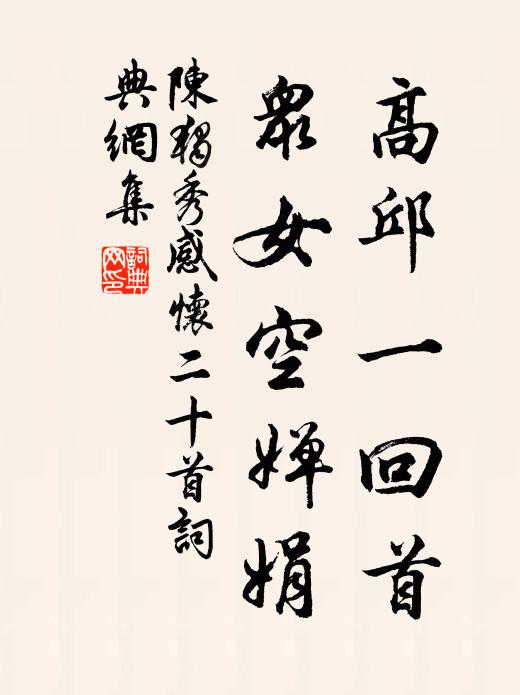 高邱一回首
衆女空嬋娟
陳獨秀感懷二十首詞
典網集
詞典
网印